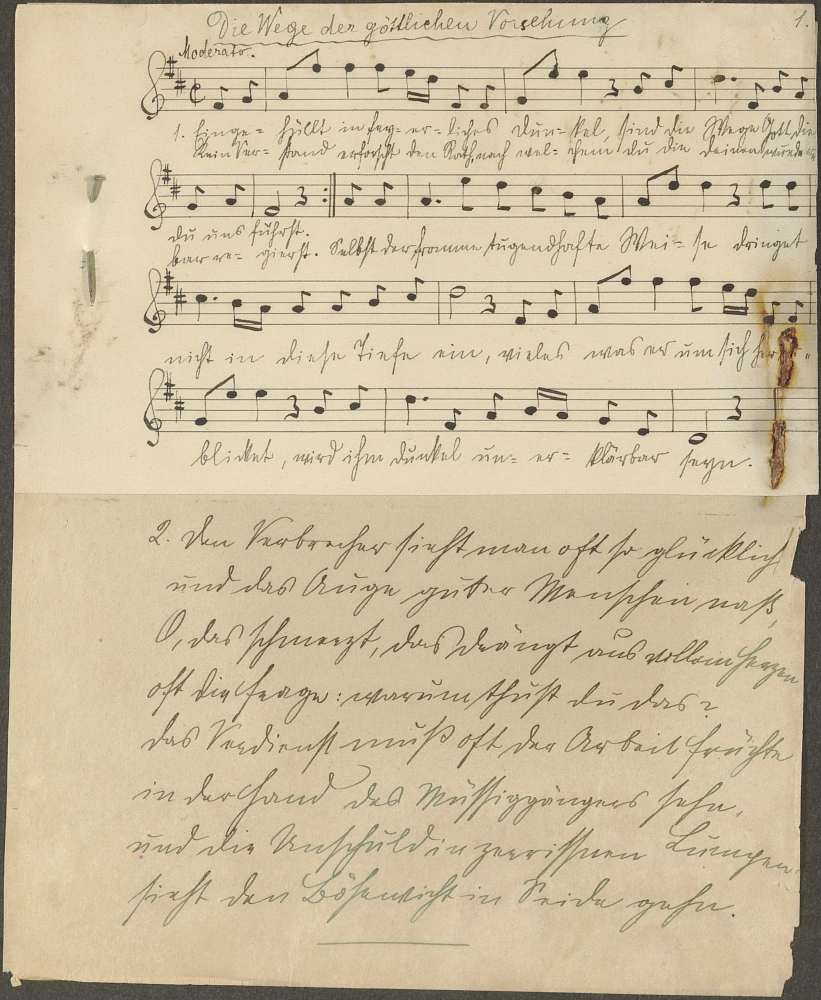 Die Wege der göttlichen Vorsehung
1.
Moderato.
1. Einge= hüllt in fey= er= liches Dun= kel, sind die Wege Gott, die
Kein Ver= stand erforscht den Rath, nach wel= chem du die deinen wunder
du uns führst.
bar re= gierst. Selbst der fromme tugendhafte Wei= se dringet
nicht in diese Tiefe ein, vieles was er um sich her
blicket, wird ihm dunkel un= er= klärbar seyn.
2. Den Verbrecher sieht man oft so glücklich
und das Auge guter Menschen naß,
O, das schmerzt, das drängt aus vollem Herzen
oft die Frage: warum thust du das?
das Verdienst muß oft der Arbeit Früchte
in der Hand des Müssiggängers sehn,
und die Unschuld in zerrissnen Lumpen
sieht den Bösewicht in Seide gehn.